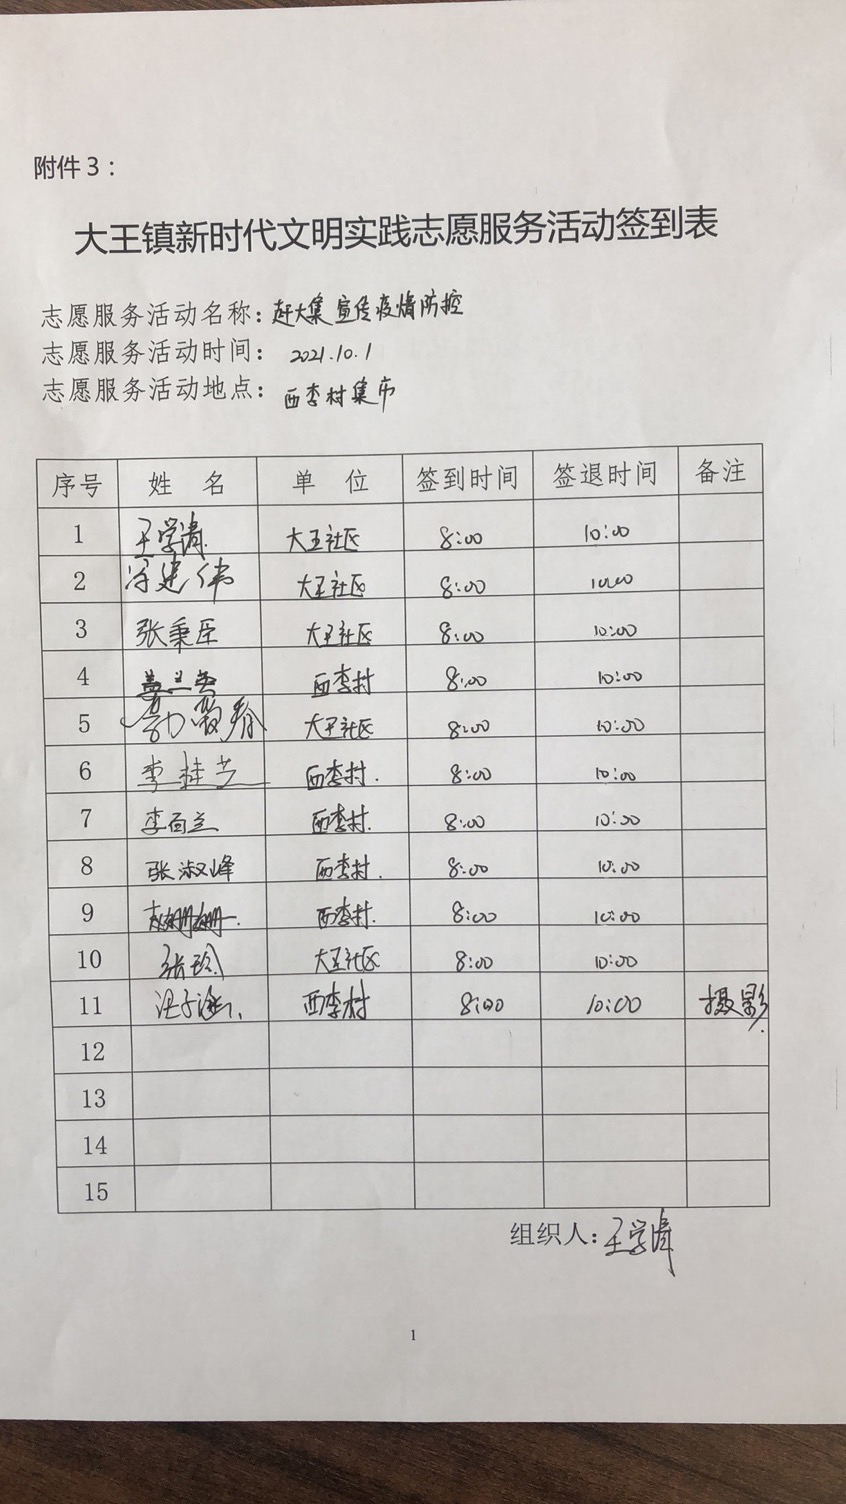 附件3：
大王镇新时代文明实践志愿服务活动签到表
志愿服务活动名称：赶大集宣传疫情防控
志愿服务活动时间： 2021.10.1
志愿服务活动地点： 西李村集市
序号 姓 名 单 位 签到时间 签退时间 备注
1 王学清 大王社区 8:00 10:00
2 建伟 大王社区 8:00 10:00
3 张秉臣 大王社区 8:00 10:00
4 西李村 8:00 10:00
5 大王社区 8:00 10:00
6 李桂芝 西李村. 8:00 10:00
7 李百兰 西李村. 8:00 10:00
8 张淑峰 西李村. 8:00 10:00
9 西李村. 8:00 10:00
10 张玲 大王社区 8:00 10:00
11 西李村 8:00 10:00 摄影.
12
13
14
15
组织人：王学清
1